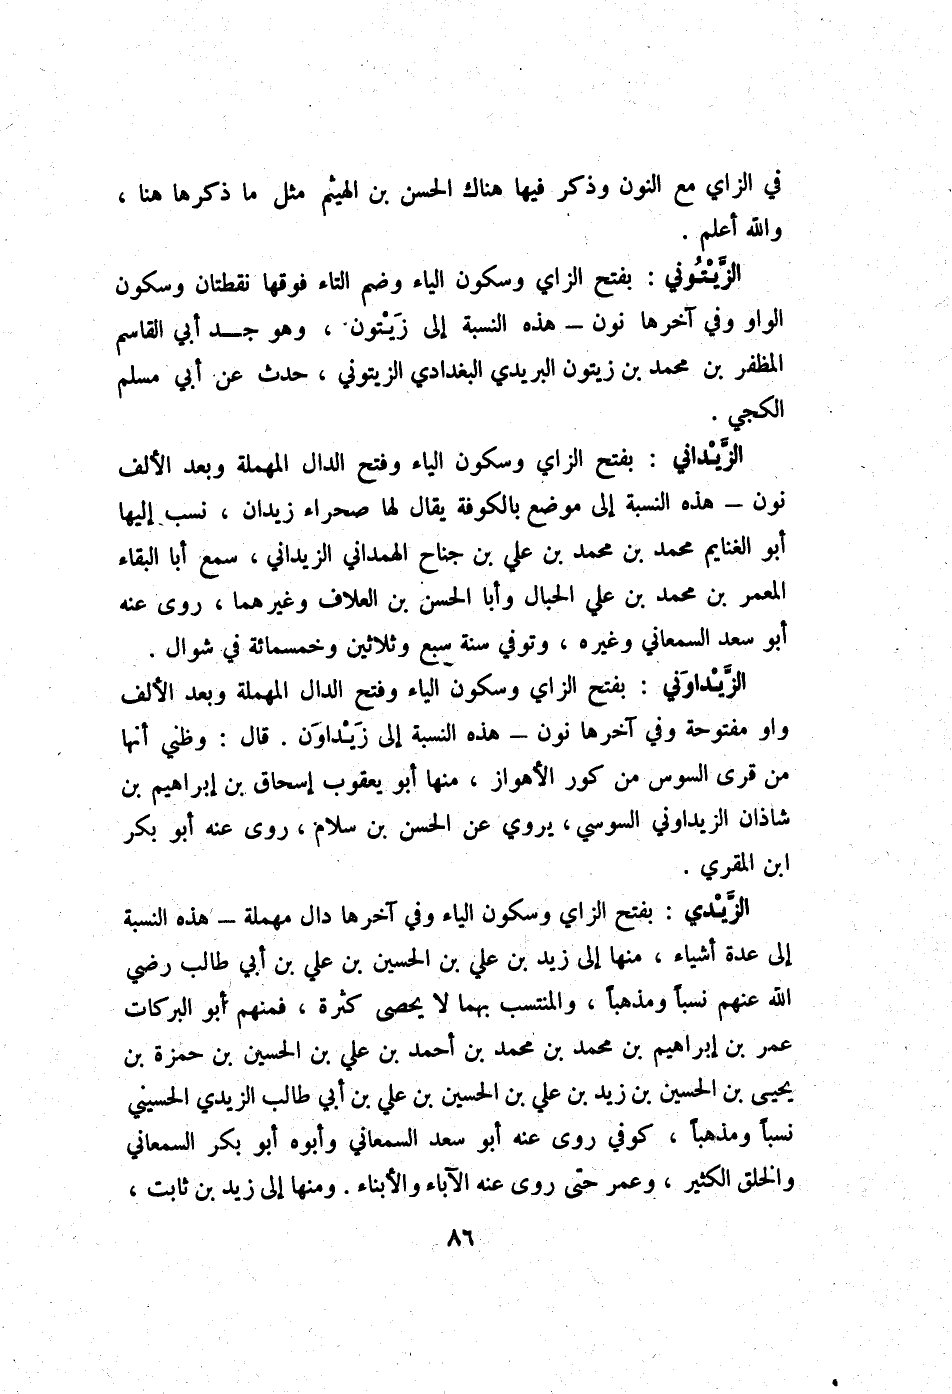 في الزاي مع النون وذكر فيها هناك الحسن بن الهيثم مثل ما ذكرها هنا ،
والله أعلم .
الزَّيْتُوني : بفتح الزاي وسكون الياء وضم التاء فوقها نقطتان وسكون
الواو وفي آخرها نون – هذه النسبة إلى زَيْتون ، وهو جد أبي القاسم
المظفر بن محمد بن زيتون البريدي البغدادي الزيتوني ، حدث عن أبي مسلم
الكجي .
الزَّيْداني : بفتح الزاي وسكون الياء وفتح الدال المهملة وبعد الألف
نون – هذه النسبة إلى موضع بالكوفة يقال لها صحراء زيدان ، نسب إليها
أبو الغنايم محمد بن محمد بن علي بن جناح الهمداني الزيداني ، سمع أبا البقاء
المعمر بن محمد بن علي الحبال وأبا الحسن بن العلاف وغيرهما ، روى عنه
أبو سعد السمعاني وغيره ، وتوفي سنة سبع وثلاثين وخمسمائة في شوال .
الزَّيْداوَني : بفتح الزاي وسكون الياء وفتح الدال المهملة وبعد الألف
واو مفتوحة وفي آخرها نون – هذه النسبة إلى زَيْداوَن . قال : وظني أنها
من قرى السوس من كور الأهواز ، منها أبو يعقوب إسحاق بن إبراهيم بن
شاذان الزيداوني السوسي ، يروي عن الحسن بن سلام ، روى عنه أبو بكر
ابن المقري .
الزَّيْدي : بفتح الزاي وسكون الياء وفي آخرها دال مهملة – هذه النسبة
إلى عدة أشياء ، منها إلى زيد بن علي بن الحسين بن علي بن أبي طالب رضي
الله عنهم نسباً ومذهباً ، والمنتسب بهما لا يحصى كثرة ، فمنهم أبو البركات
عمر بن إبراهيم بن محمد بن محمد بن أحمد بن علي بن الحسين بن حمزة بن
يحيى بن الحسين بن زيد بن علي بن الحسين بن علي بن أبي طالب الزيدي الحسيني
نسباً ومذهباً ، كوفي روى عنه أبو سعد السمعاني وأبوه أبو بكر السمعاني
والخلق الكثير ، وعمر حتى روى عنه الآباء والأبناء . ومنها إلى زيد بن ثابت ،
٨٦